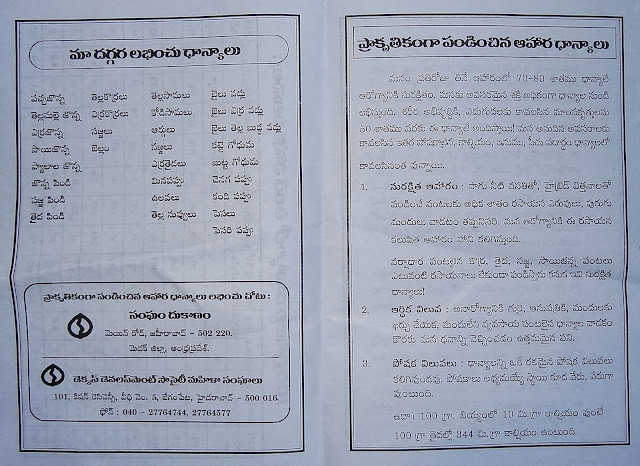 మా దగ్గర లభించు ధాన్యాలు
పచ్చజొన్న తెల్లకొర్రలు తెల్లసామలు బైలు వడ్లు
తెల్లమల్లె జొన్న ఎర్రకొర్రలు కోడిసామలు బైలు ఎర్ర వడ్లు
ఎర్రజొన్న సజ్జలు ఆర్గులు బైలు తెల్ల బుడ్డ వడ్లు
సాయిజొన్న బెల్లం సజ్జలు కట్టె గోధుమ
ప్యాలాల జొన్న ఎర్రతైదలు బుట్ట గోధుమ
జొన్న పిండి మినపప్పు చెనగ పప్పు
సజ్జ పిండి ఉలవలు కంది పప్పు
తైద పిండి తెల్ల నువ్వులు పెసలు
పెసరి పప్పు
ప్రాకృతికంగా పండించిన ఆహార ధాన్యాలు లభించు చోటు :
సంఘం దుకాణం
మెయిన్ రోడ్, జహీరాబాద్ - 502 220.
మెదక్ జిల్లా, ఆంధ్రప్రదేశ్.
డెక్కన్ డెవలప్‌మెంట్ సొసైటి మహిళా సంఘాలు
101, కిషన్ రెసిడెన్సీ, వీధి నెం. 5, బేగంపేట, హైదరాబాద్ - 500 016.
ఫోన్ : 040 - 27764744, 27764577
ప్రాకృతికంగా పండించిన ఆహార ధాన్యాలు
మనం ప్రతిరోజు తినే ఆహారంలో 70-80 శాతము ధాన్యాలే
ఆరోగ్యానికి సురక్షితం. మనకు అవసరమైన శక్తి అధికంగా ధాన్యాల నుండే
లభిస్తుంది. శరీర అభివృద్ధికి, ఎదుగుదలకు కావలసిన మాంసకృత్తులను
50 శాతము వరకు ఈ ధాన్యాలే అందిస్తాయి! మన అనుదిన అవసరాలకు
కావలసిన ఇతర పోషకాలైన, కాల్షియం, ఇనుము, పీచు పదార్థం ధాన్యాలలో
కావలసినంత వున్నాయి.
1. సురక్షిత ఆహారం : సాగు నీటి వసతితో, హైబ్రిడ్ విత్తనాలతో
పండించే పంటలకు అధిక శాతం రసాయన ఎరువులు, పురుగు
మందులు వాడటం తప్పనిసరి. మన ఆరోగ్యానికి ఈ రసాయన
కలుషిత ఆహారం హాని కలిగిస్తుంది.
వర్షాధార పంటలైన కొర్ర, తైద, సజ్జ, సాయిజొన్న పంటలు
ఎటువంటి రసాయనాలు లేకుండా పండిస్తారు కనుక ఇవి సురక్షిత
ధాన్యాలు!
2. ఆర్థిక విలువ : అనారోగ్యానికి గురై, ఆసుపత్రికి, మందులకు
ఖర్చు చేయక, మందులేని వ్యవసాయ పంటలైన ధాన్యాల వాడకం
కొరకు మన ధనాన్ని వెచ్చించడం ఉత్తమమైన పని.
3. పోషక విలువలు : ధాన్యాలన్ని ఒకే రకమైన పోషక విలువలు
కలిగివుండవు. పోషకాలు లభ్యమయ్యే స్థాయి కూడ వేరు, వేరుగా
వుంటుంది.
ఉదా: 100 గ్రా. బియ్యంలో 10 మి.గ్రా కాల్షియం వుంటే
100 గ్రా తైదల్లో 344 మి.గ్రా కాల్షియం ఉంటుంది.